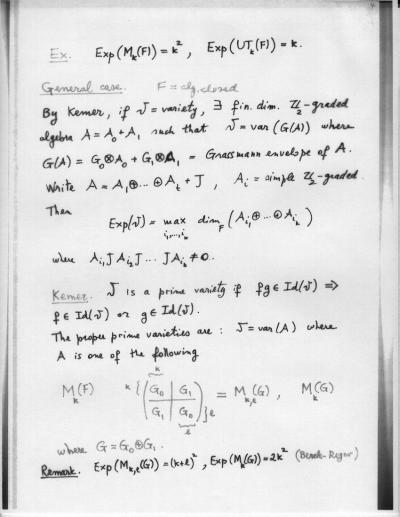 Ex. Exp(M_k(F)) = k², Exp(UT_k(F)) = k.
General case. F = alg. closed
By Kemer, if V = variety, ∃ fin. dim. Z₂-graded
algebra A = A₀ + A₁ such that V = var(G(A)) where
G(A) = G₀⊗A₀ + G₁⊗A₁ = Grassmann envelope of A.
Write A = A₁⊕...⊕A_t + J, A_i = simple Z₂-graded
Then
Exp(V) = max dim_F (A_{i₁}⊕...⊕A_{i_k})
i₁,...,i_k
where A_{i₁}JA_{i₂}J...JA_{i_k} ≠ 0.
Kemer. V is a prime variety if fg ∈ Id(V) ⇒
f ∈ Id(V) or g ∈ Id(V).
The proper prime varieties are: V = var(A) where
A is one of the following
k
M_k(F) k{(G₀ | G₁ = M_{k,l}(G), M_k(G)
G₁ | G₀)}l
l
where G = G₀⊕G₁.
Remark. Exp(M_{k,l}(G)) = (k+l)², Exp(M_k(G)) = 2k² (Berele-Regev)